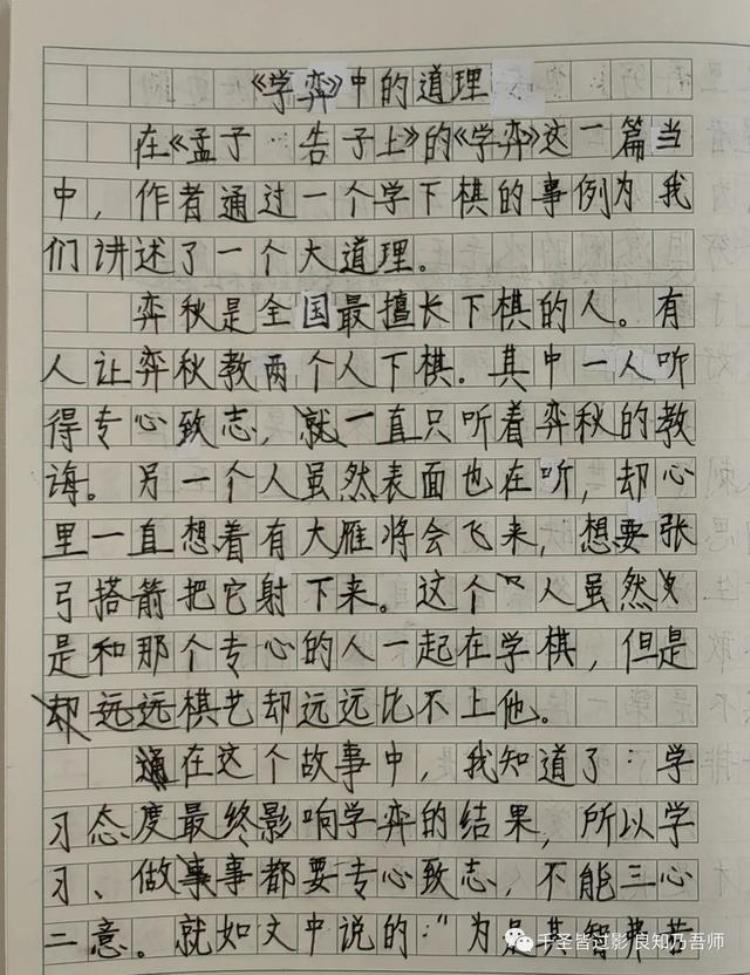 《学弈》中的道理
在《孟子·告子上》的《学弈》这一篇当
中，作者通过一个学下棋的事例为我
们讲述了一个大道理。
弈秋是全国最擅长下棋的人。有
人让弈秋教两个人下棋。其中一人听
得专心致志，就一直只听着弈秋的教
诲。另一个人虽然表面也在听，却心
里一直想着有大雁将会飞来，想要张
弓搭箭把它射下来。这个人虽然
是和那个专心的人一起在学棋，但是
却远远棋艺却远远比不上他。
在这个故事中，我知道了：学
习态度最终影响学弈的结果，所以学
习、做事事都要专心致志，不能三心
二意。就如文中说的："为是其智弗若
千圣皆过影 良知乃吾师